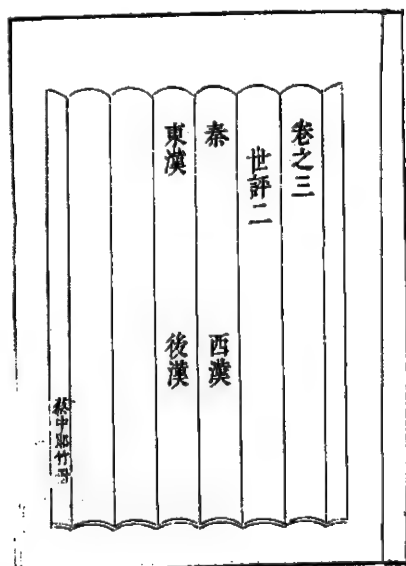 卷之三
世評二
秦 西漢
東漢 後漢
蔡中郎竹